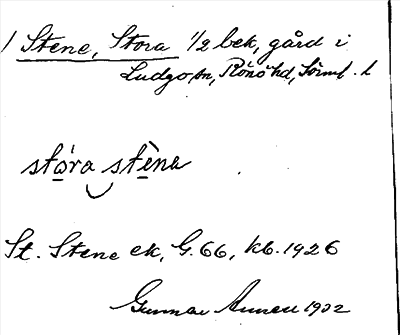 / Stene, Stora 1/2 bek, gård i
Ludgo sn, Rönö hd, Sörml. l
stóra stèna
St. Stene ek, G. 66, kb. 1926
Gunnar 1932